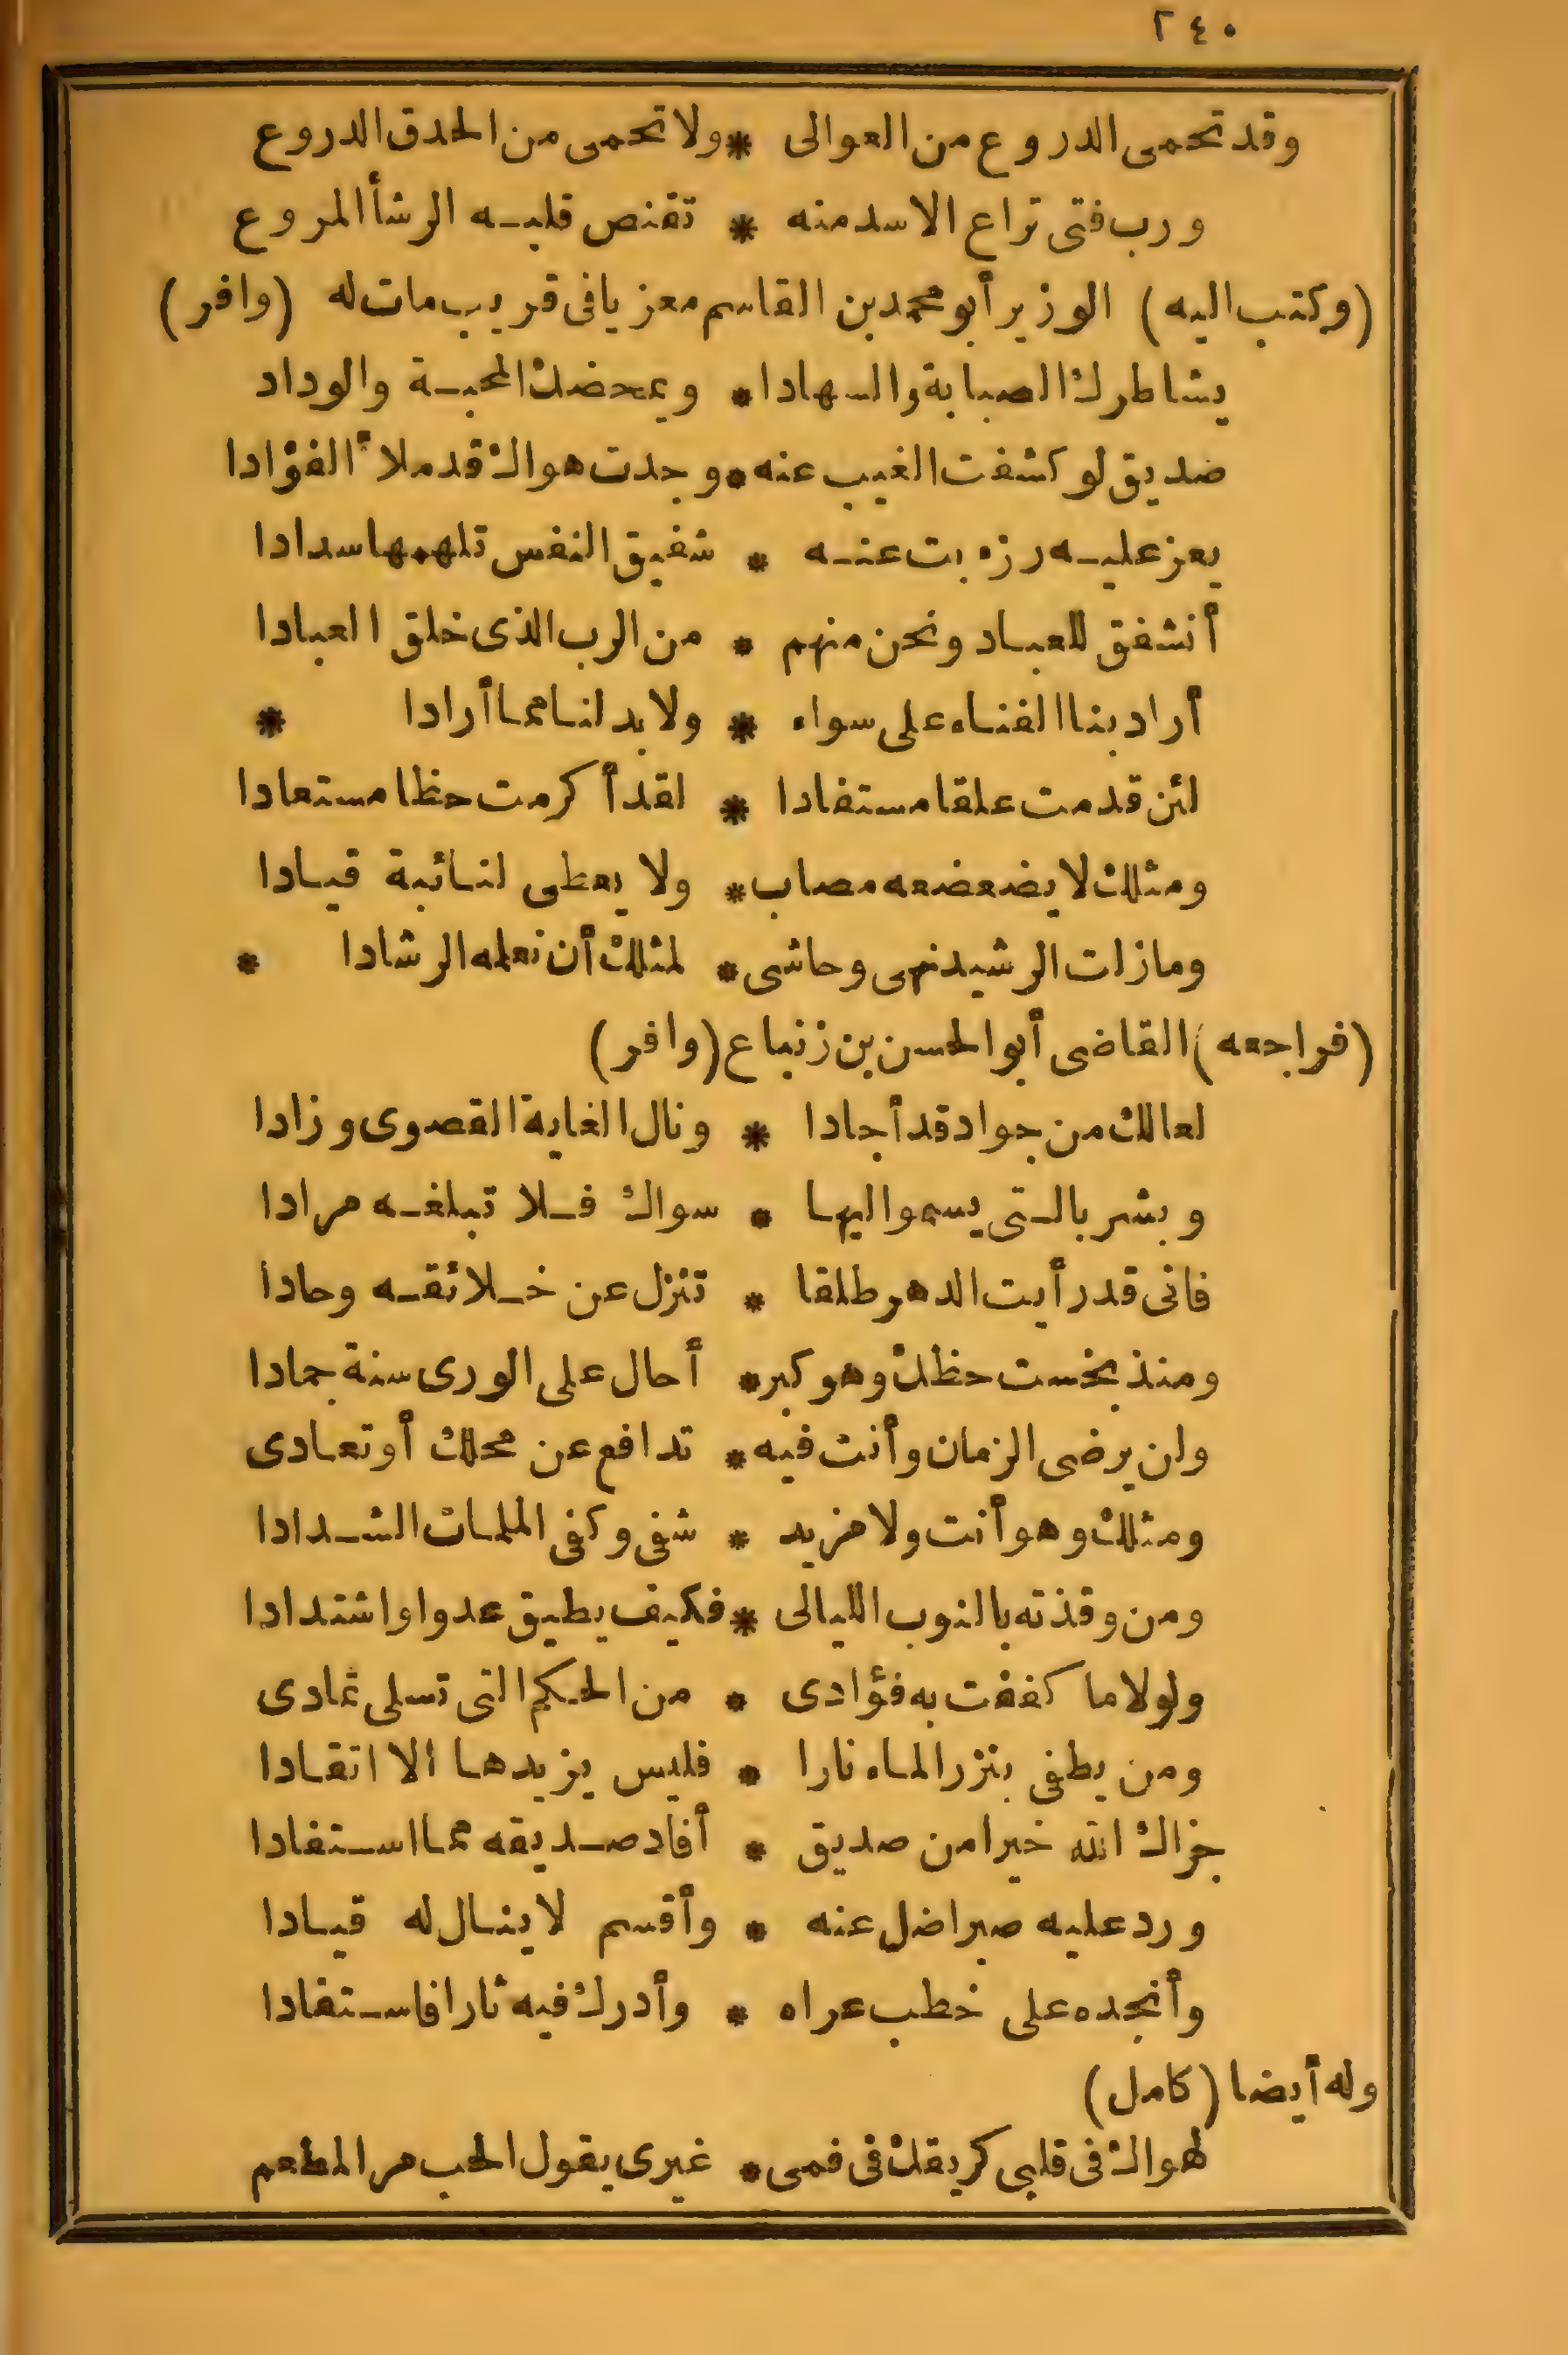 ٢٤٠
وقد تحمى الدروع من العوالى * ولا تحمى من الحدق الدروع
ورب فتى تراع الاسد منه * تقنص قلبه الرشأ المروع
(وكتب اليه) الوزير أبو محمد بن القاسم معزيا فى قريب مات له (وافر)
يشاطرك الصبابة والسهادا * ويمحضك المحبة والوداد
صديق لو كشفت الغيب عنه * وجدت هواك قد ملأ الفؤادا
يعز عليه رزء بت عنه * شفيق النفس تلهمها سدادا
أنشفق للعباد ونحن منهم * من الرب الذى خلق العبادا
أراد بنا الفناء على سواء * ولا بد لنا مما أرادا *
لئن قدمت علقا مستفادا * لقد أكرمت حظا مستعادا
ومثلك لا يضعضعه مصاب * ولا يعطى لنائبة قيادا
ومازلت الرشيد نهى وحاشى * لمثلك أن نعلمه الرشادا *
(فراجعه) القاضى أبو الحسن بن زنباع (وافر)
لعالك من جواد قد أجادا * ونال الغاية القصوى وزادا
وبشر بالتى يسمو اليها * سواك فلا تبلغه مرادا
فانى قد رأيت الدهر طلقا * تنزل عن خلائقه وحادا
ومنذ بخست حظك وهو كبر * أحال على الورى سنة جمادا
وان يرضى الزمان وأنت فيه * تدافع عن محلك أو تعادى
ومثلك وهو أنت ولا مزيد * شفى وكفى الملمات الشدادا
ومن وقذته بالنوب الليالى * فكيف يطيق عدوا واشتدادا
ولولا ما كففت به فؤادى * من الحكم التى تسلى تمادى
ومن يطفى بنزر الماء نارا * فليس يزيدها الا اتقادا
جزاك الله خيرا من صديق * أفاد صديقه مما استفادا
ورد عليه صبرا ضل عنه * وأقسم لا ينال له قيادا
وأنجده على خطب عراه * وأدرك فيه ثارا فاستفادا
وله أيضا (كامل)
لهواك فى قلبى كريقك فى فمى * غيرى يقول الحب مر المطعم